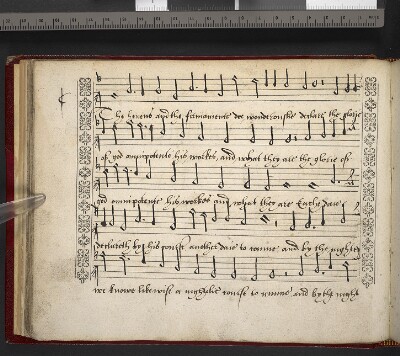 The heavens and the firmamente doe wonderouslie declare the glorie
of god omnipotente his workes, and what they are the glorie of
god omnipotente his workes and what they are Eache daie
declareth by his course another daie to come and by the nighte
we knowe likewise a nightlie course to come and by the night